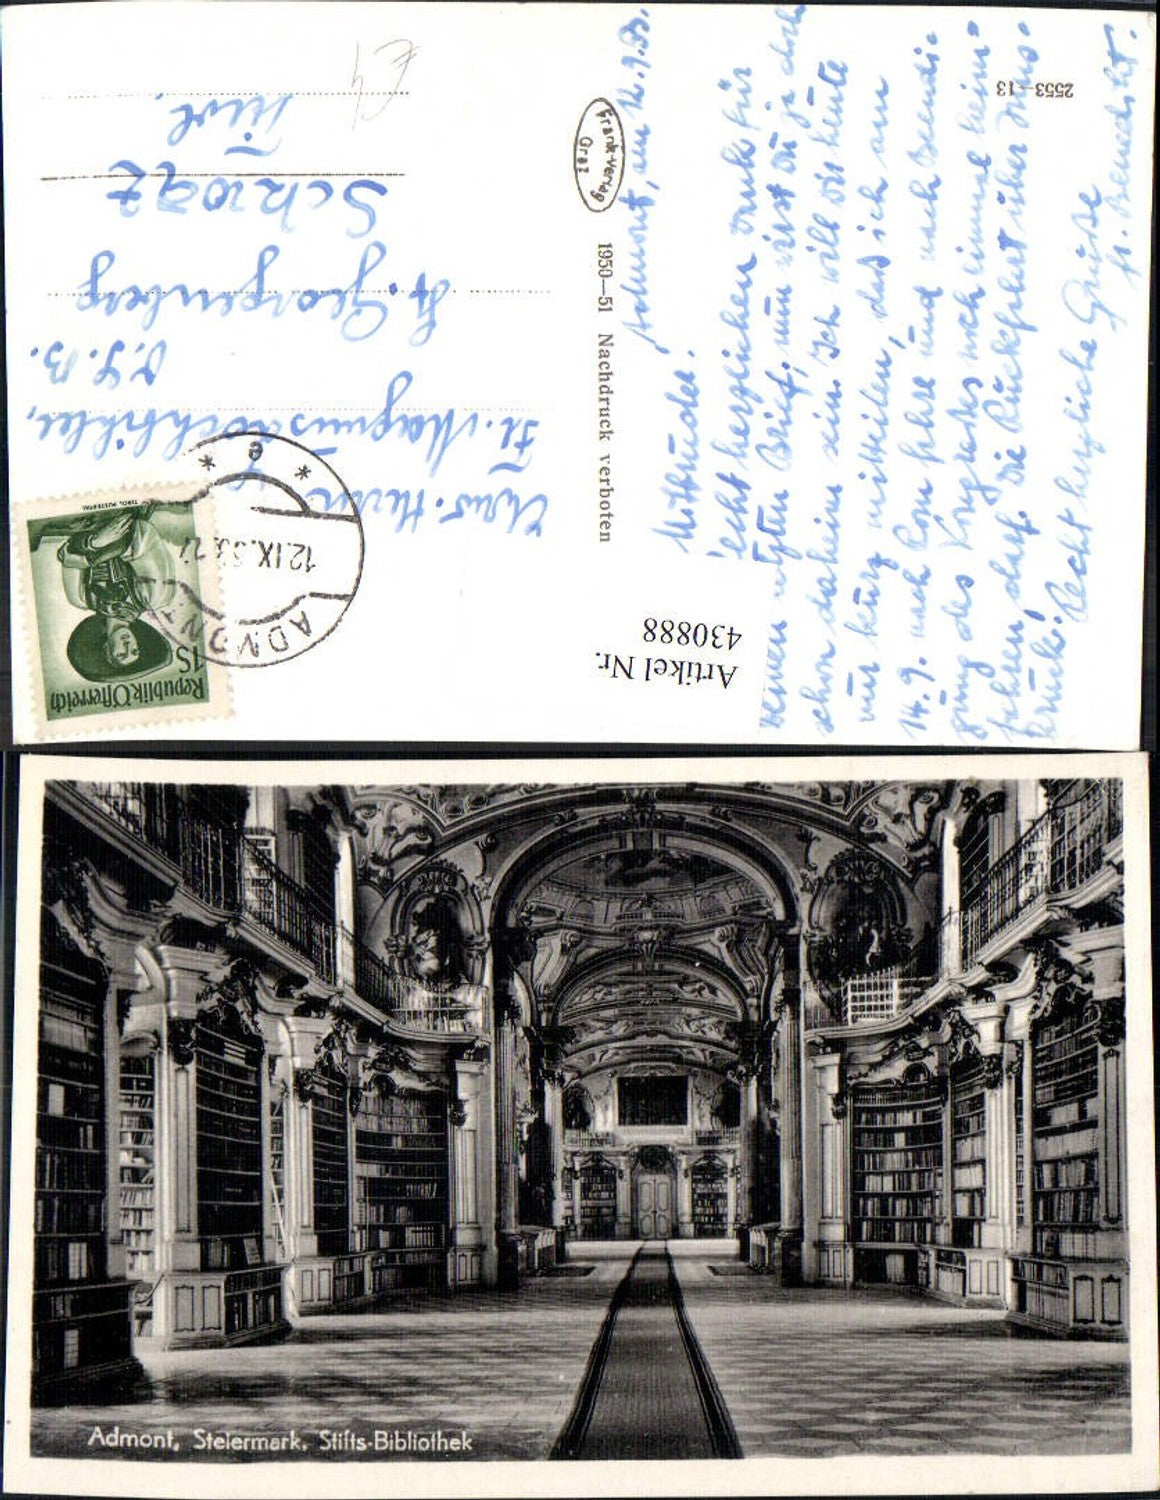 Admont, am 12.9.53.
Mitbruder.
Recht herzlichen Dank für
Deinen letzten Brief, nun wirst Du ja doch
schon daheim sein. Ich will dir heute
nur kurz mitteilen, daß ich am
14.9. nach Rom fahre und nach Beendi-
gung des Kongresses noch einmal heim-
fahren darf. Die Rückfahrt über Inns-
bruck. Recht herzliche Grüße
fr. Benedikt.
2553—13
Frank-Verlag
Graz
1950—51 Nachdruck verboten
Artikel Nr.
430888
fr. Magnus
O.S.B.
St. Georgenberg
Schwaz
Tirol.
€ 4
ADMONT
12.IX.53
* e *
1S
Republik Österreich
TIROL, PUSTERTAL
Admont, Steiermark. Stifts-Bibliothek